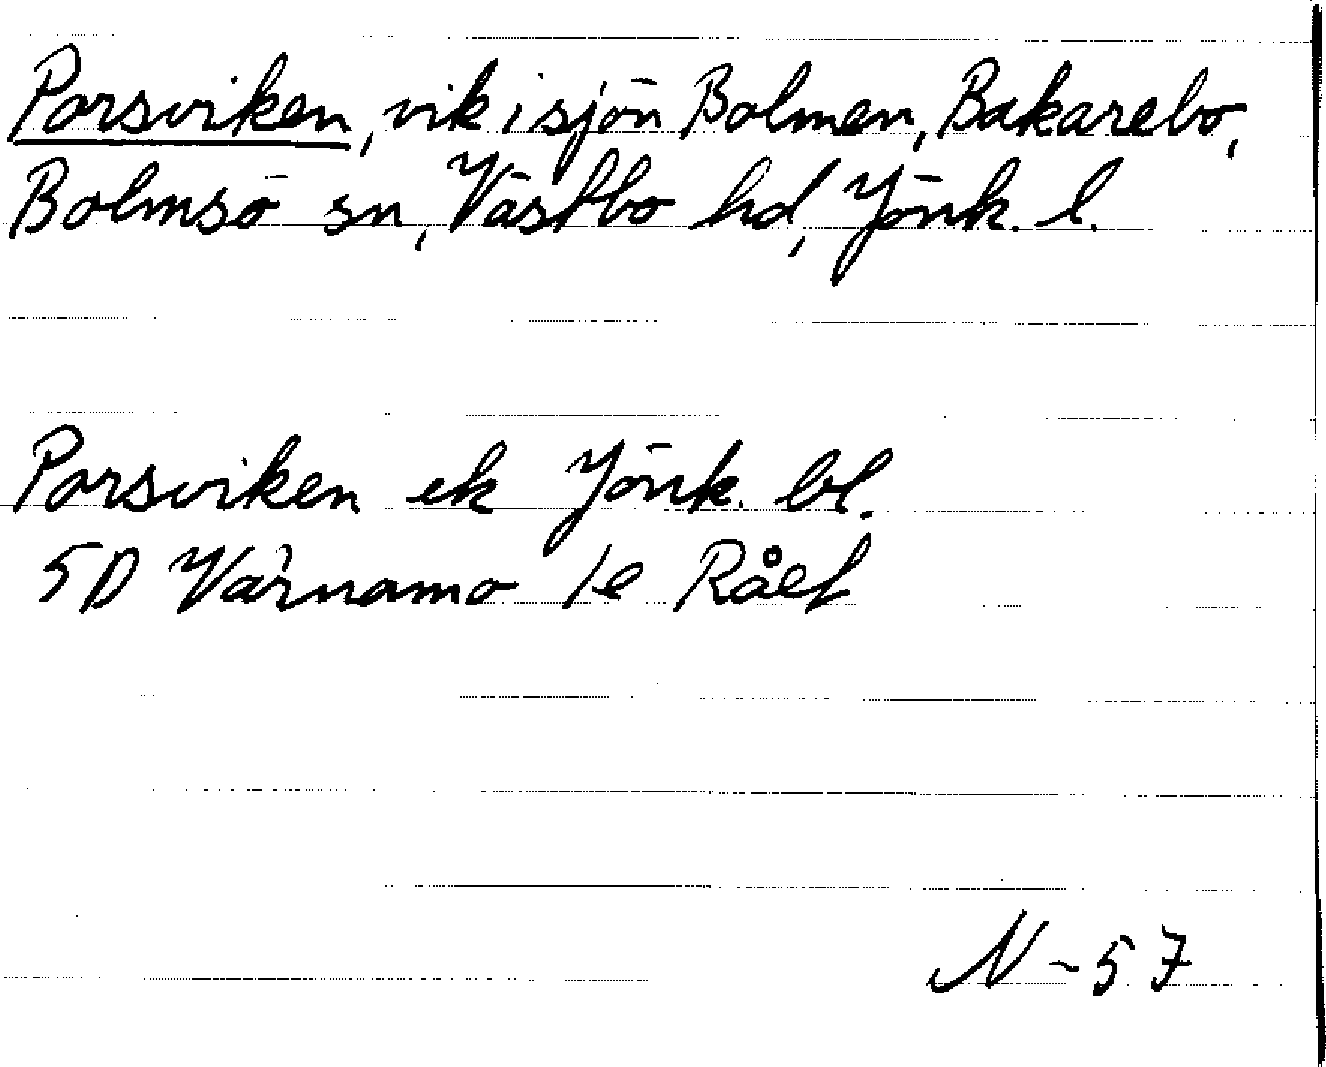 Porsviken, vik i sjön Bolmen, Bakarebo,
Bolmsö sn, Västbo hd, Jönk. l.
Porsviken ek Jönk. bl.
5D Värnamo 1e RåEf
N-57